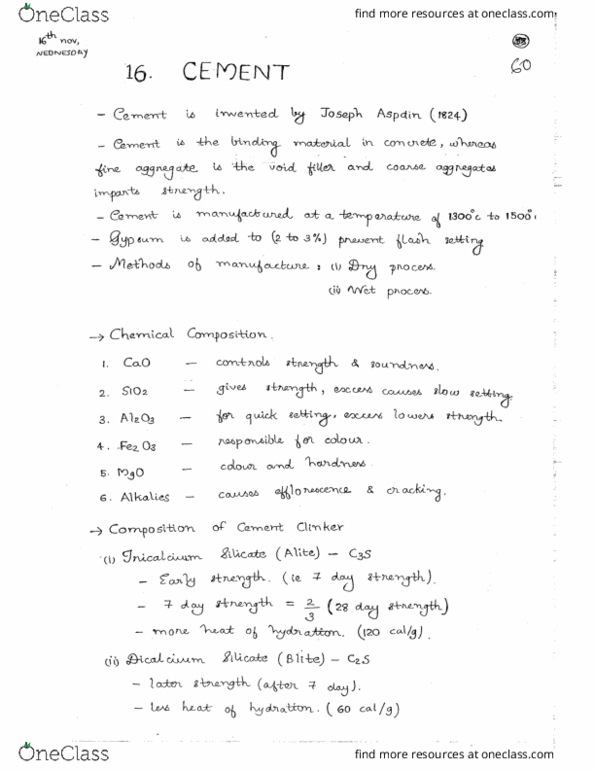 OneClass
find more resources at oneclass.com
16th nov,
WEDNESDAY
60
16. CEMENT
- Cement is invented by Joseph Aspdin (1824)
- Cement is the binding material in concrete, whereas
fine aggregate is the void filler and coarse aggregates
imparts strength.
- Cement is manufactured at a temperature of 1300°c to 1500°
- Gypsum is added to (2 to 3%) prevent flash setting
- Methods of manufacture : (i) Dry process.
(ii) Wet process.
→ Chemical Composition.
1. CaO - controls strength & soundness.
2. SiO2 - gives strength, excess causes slow setting
3. Al2O3 - for quick setting, excess lowers strength.
4. Fe2O3 - responsible for colour.
5. MgO - colour and hardness.
6. Alkalies - causes efflorescence & cracking.
→ Composition of Cement Clinker
(i) Tricalcium Silicate (Alite) - C3S
- Early strength. (ie 7 day strength).
- 7 day strength = 2/3 (28 day strength)
- more heat of hydration. (120 cal/g).
(ii) Dicalcium Silicate (Blite) - C2S
- later strength (after 7 day).
- less heat of hydration. (60 cal/g)
OneClass
find more resources at oneclass.com